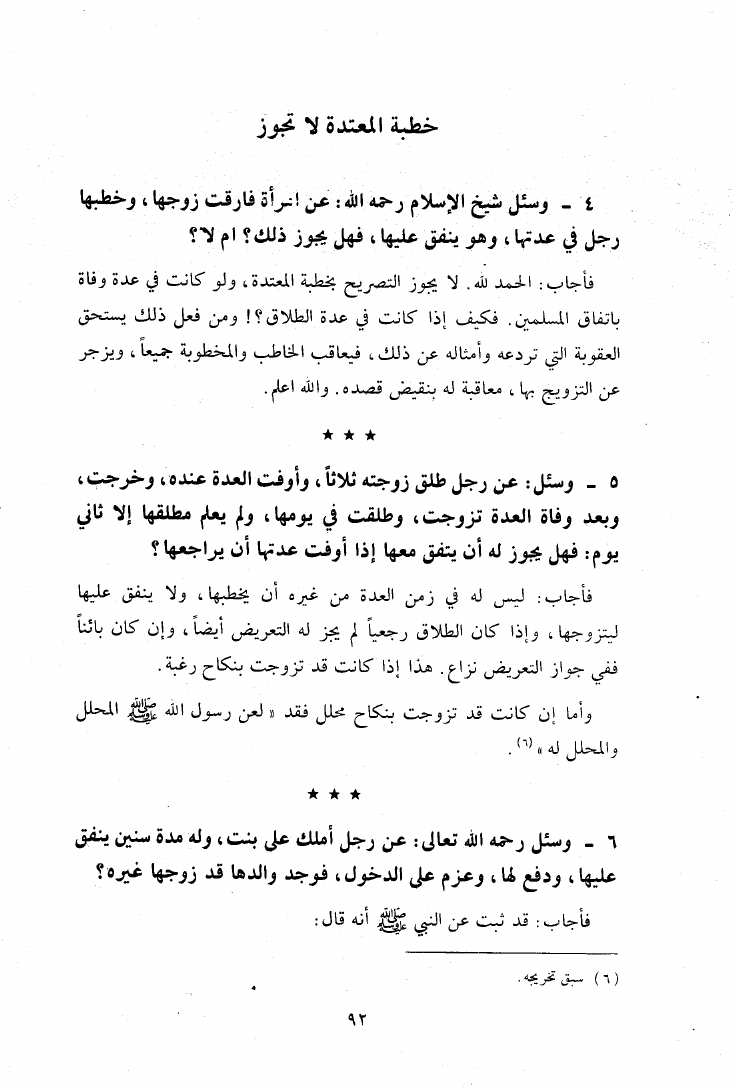 خطبة المعتدة لا تجوز
٤ - وسئل شيخ الإسلام رحمه الله: عن امرأة فارقت زوجها، وخطبها
رجل في عدتها، وهو ينفق عليها، فهل يجوز ذلك؟ ام لا؟
فأجاب: الحمد لله. لا يجوز التصريح بخطبة المعتدة، ولو كانت في عدة وفاة
باتفاق المسلمين. فكيف إذا كانت في عدة الطلاق؟! ومن فعل ذلك يستحق
العقوبة التي تردعه وأمثاله عن ذلك، فيعاقب الخاطب والمخطوبة جميعاً، ويزجر
عن التزويج بها، معاقبة له بنقيض قصده. والله اعلم.
★ ★ ★
٥ - وسئل: عن رجل طلق زوجته ثلاثاً، وأوفت العدة عنده، وخرجت،
وبعد وفاة العدة تزوجت، وطلقت في يومها، ولم يعلم مطلقها إلا ثاني
يوم: فهل يجوز له أن يتفق معها إذا أوفت عدتها أن يراجعها؟
فأجاب: ليس له في زمن العدة من غيره أن يخطبها، ولا ينفق عليها
ليتزوجها، وإذا كان الطلاق رجعياً لم يجز له التعريض أيضاً، وإن كان بائناً
ففي جواز التعريض نزاع. هذا إذا كانت قد تزوجت بنكاح رغبة.
وأما إن كانت قد تزوجت بنكاح محلل فقد « لعن رسول الله ﷺ المحلل
والمحلل له »(٦).
★ ★ ★
٦ - وسئل رحمه الله تعالى: عن رجل أملك على بنت، وله مدة سنين ينفق
عليها، ودفع لها، وعزم على الدخول، فوجد والدها قد زوجها غيره؟
فأجاب: قد ثبت عن النبي ﷺ أنه قال:
(٦) سبق تخريجه.
٩٢